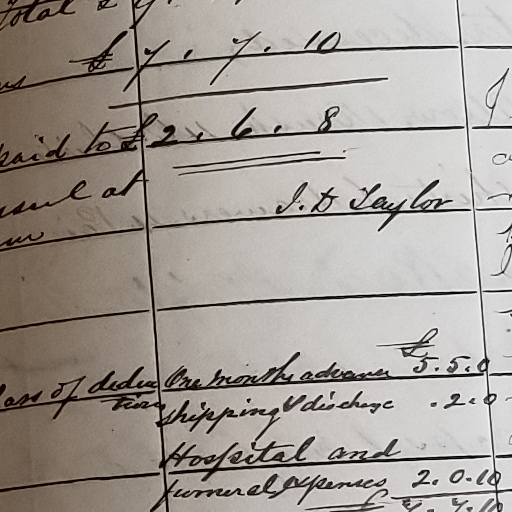 total £
£ 7 . 7 . 10
paid to £ 2 . 6 . 8
at
J. D Taylor
£
of deduc One months advance 5.5.0
tions shipping & discharge .2.0
Hospital and
funeral expenses 2.0.10
£ 7.7.10